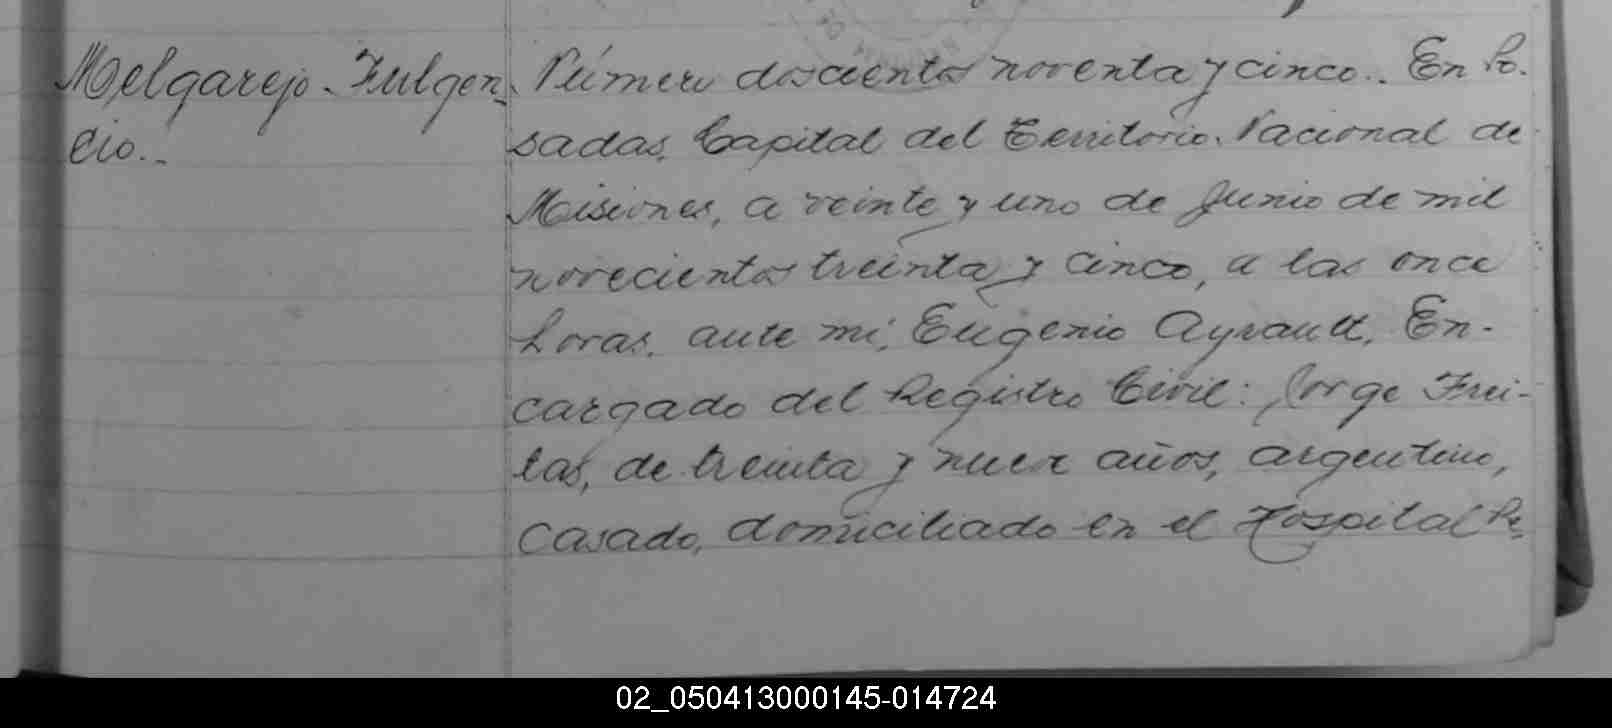 Melgarejo. Fulgen-
cio..
Número doscientos noventa y cinco.. En Po-
sadas, Capital del Territorio Nacional de
Misiones, a veinte y uno de Junio de mil
novecientos treinta y cinco, a las once
horas, ante mi, Eugenio Ayrault, En-
cargado del Registro Civil: Jorge Frei-
tas, de treinta y nueve años, argentino,
casado, domiciliado en el Hospital Re-
02_050413000145-014724